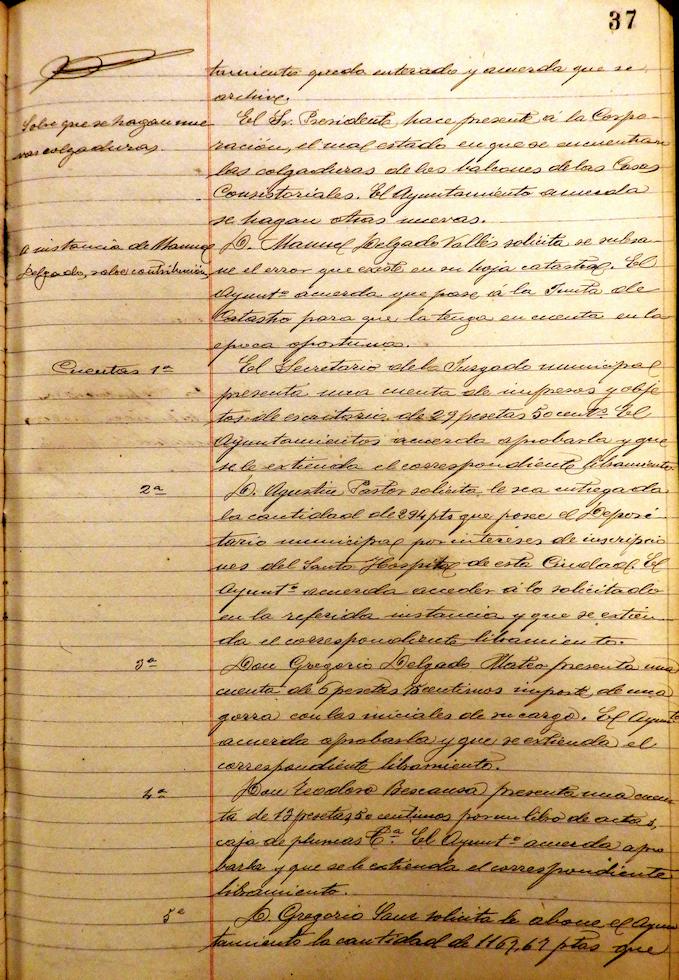 37
tamiento queda enterado y acuerda que se
archive.
Sobre que se hagan nue
vas colgaduras.
El Sr. Presidente hace presente á la Corpo-
ración, el mal estado en que se encuentran
las colgaduras de los balcones de las Casas
Consistoriales. El Ayuntamiento acuerda
se hagan otras nuevas.
A instancia de Manuel
Delgado, sobre contribución
D. Manuel Delgado Vallés solicita se subsa-
ne el error que existe en su hoja catastral. El
Ayuntº acuerda que pase á la Junta de
Catastro para que la tenga en cuenta en la
epoca oportuna.
Cuentas 1ª
El Secretario de la Juzgado municipal
presenta una cuenta de impresos y obje
tos de escritorio de 29 pesetas 50 centˢ. El
Ayuntamientos acuerda aprobarla y que
se le extienda el correspondiente libramiento.
2ª
D. Agustin Pastor solicita le sea entregada
la cantidad de 294 pts que posee el Deposi-
tario municipal por intereses de inscripcio
nes del Santo Hospital de esta Ciudad. El
Ayuntº acuerda acceder á lo solicitado
en la referida instancia y que se extien-
da el correspondiente libramiento.
3ª
Don Gregorio Delgado Mateo presenta una
cuenta de 6 pesetas 75 centimos importe de una
gorra con las iniciales de su cargo. El Ayuntº
acuerda aprobarla y que se extienda el
correspondiente libramiento.
4ª
Don Teodoro Bescansa presenta una cuen
ta de 13 pesetas 50 centimos por un libro de actas,
caja de plumas &ª. El Ayuntº acuerda apro
barla y que se le extienda el correspondiente
libramiento.
5ª
D. Gregorio Sanz solicita le abone el Ayun
tamiento la cantidad de 1167,67 ptas que